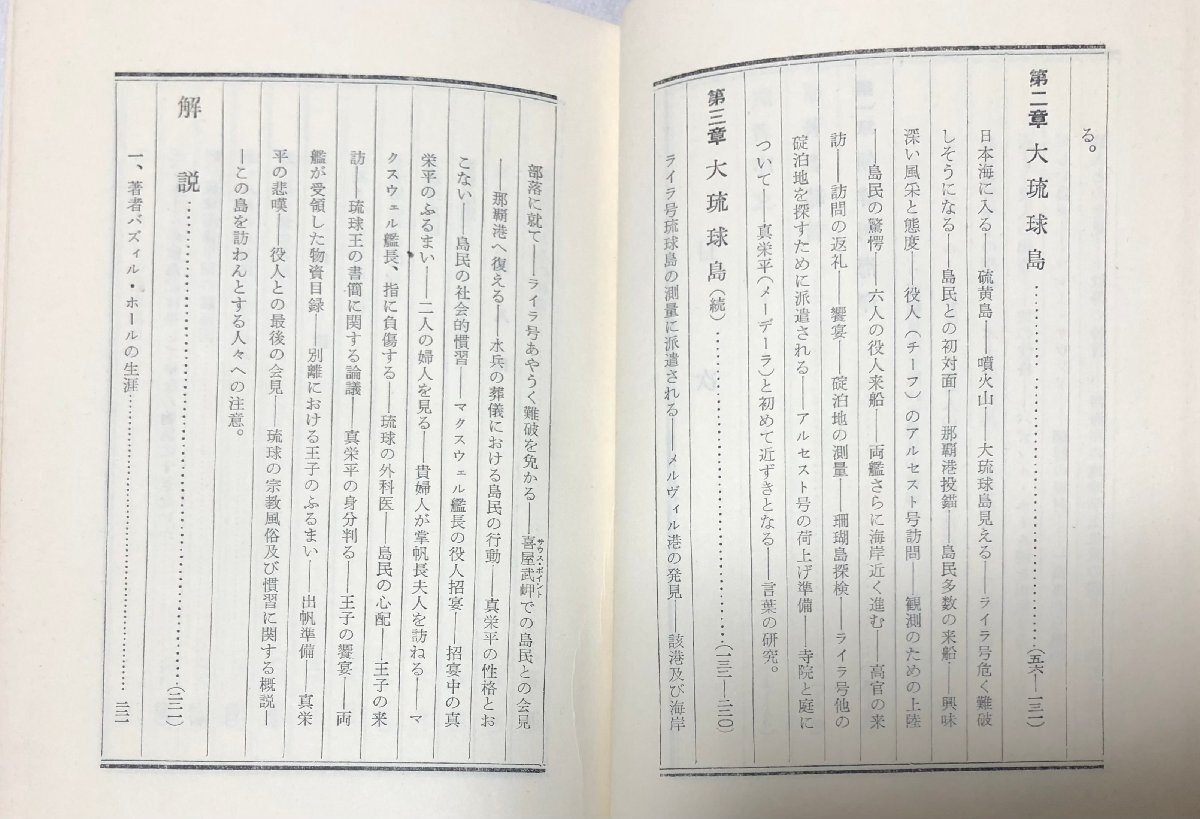 る。
第二章 大琉球島……………………………(五六—一三一)
日本海に入る——硫黄島——噴火山——大琉球島見える——ライラ号危く難破
しそうになる——島民との初対面——那覇港投錨——島民多数の来船——興味
深い風采と態度——役人(チーフ)のアルセスト号訪問——観測のための上陸
——島民の驚愕——六人の役人来船——両艦さらに海岸近く進む——高官の来
訪——訪問の返礼——饗宴——碇泊地の測量——珊瑚島探検——ライラ号他の
碇泊地を探すために派遣される——アルセスト号の荷上げ準備——寺院と庭に
ついて——真栄平(メーデーラ)と初めて近ずきとなる——言葉の研究。
第三章 大琉球島(続)……………………………(一三一—二二〇)
ライラ号琉球島の測量に派遣される——メルヴィル港の発見——該港及び海岸
部落に就て——ライラ号あやうく難破を免かる——喜屋武岬サウス・ポイントでの島民との会見
——那覇港へ復える——水兵の葬儀における島民の行動——真栄平の性格とお
こない——島民の社会的慣習——マクスウェル艦長の役人招宴——招宴中の真
栄平のふるまい——二人の婦人を見る——貴婦人が掌帆長夫人を訪ねる——マ
クスウェル艦長、指に負傷する——琉球の外科医——島民の心配——王子の来
訪——琉球王の書簡に関する論議——真栄平の身分判る——王子の饗宴——両
艦が受領した物資目録——別離における王子のふるまい——出帆準備——真栄
平の悲嘆——役人との最後の会見——琉球の宗教風俗及び慣習に関する概説—
—この島を訪わんとする人々への注意。
解 説……………………………(二二一)
一、著者バズィル・ホールの生涯……………………………二二一